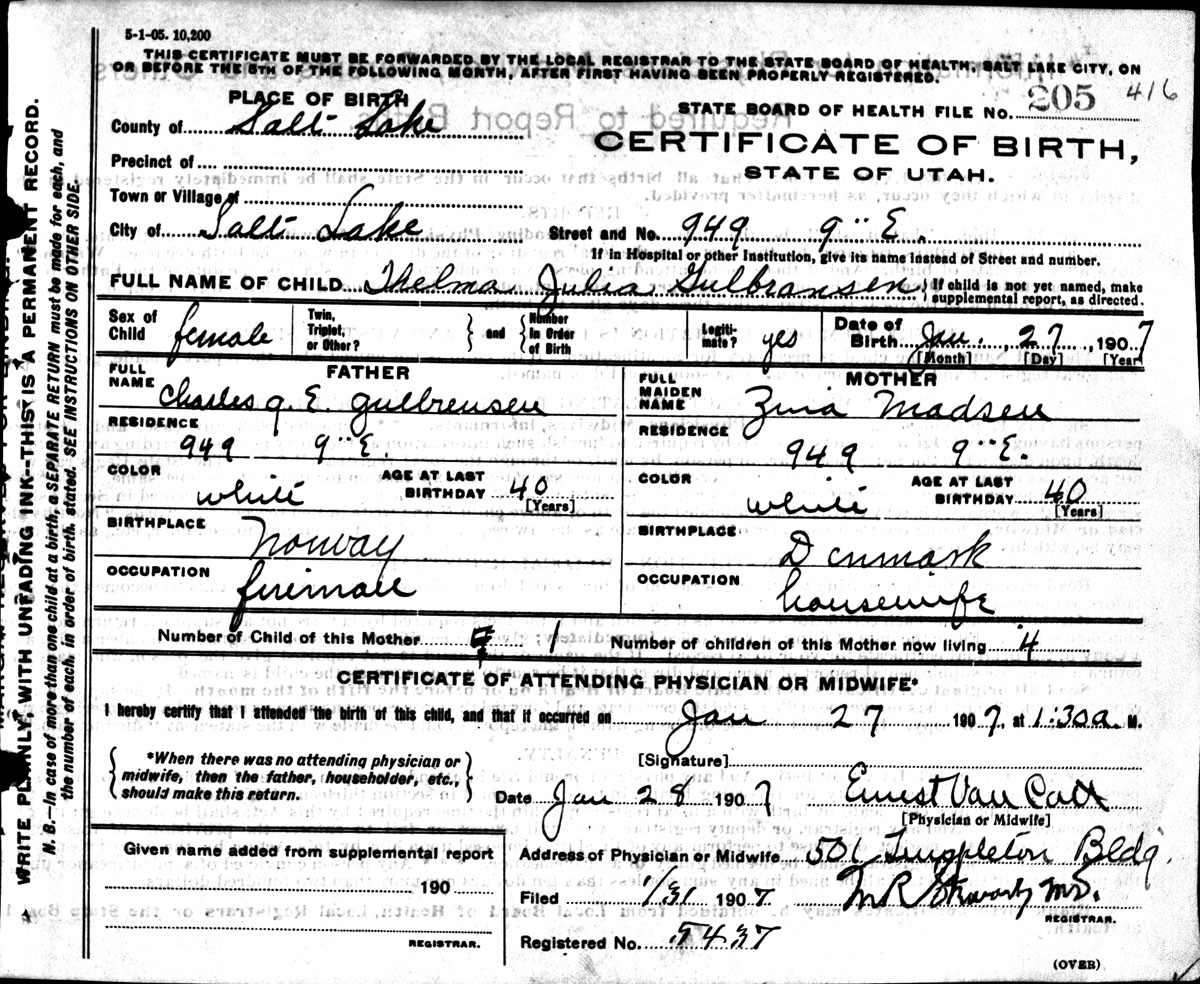 5-1-05. 10,200
THIS CERTIFICATE MUST BE FORWARDED BY THE LOCAL REGISTRAR TO THE STATE BOARD OF HEALTH, SALT LAKE CITY, ON
OR BEFORE THE 5TH OF THE FOLLOWING MONTH, AFTER FIRST HAVING BEEN PROPERLY REGISTERED.
PLACE OF BIRTH
STATE BOARD OF HEALTH FILE No. 205 416
County of Salt Lake
CERTIFICATE OF BIRTH,
STATE OF UTAH.
Precinct of
Town or Village of
City of Salt Lake Street and No. 949 9" E.
If in Hospital or other Institution, give its name instead of Street and number.
FULL NAME OF CHILD Thelma Julia Gulbransen } If child is not yet named, make supplemental report, as directed.
Sex of Child female Twin, Triplet, or Other? } and { Number in Order of Birth Legitimate? yes Date of Birth Jan. 27, 1907
[Month] [Day] [Year]
FATHER
FULL NAME Charles G. E. Gulbrensen
RESIDENCE
949 9" E.
COLOR white AGE AT LAST BIRTHDAY 40 [Years]
BIRTHPLACE Norway
OCCUPATION fireman
MOTHER
FULL MAIDEN NAME Zina Madsen
RESIDENCE
949 9" E.
COLOR white AGE AT LAST BIRTHDAY 40 [Years]
BIRTHPLACE Denmark
OCCUPATION housewife
Number of Child of this Mother 1 Number of children of this Mother now living 4
CERTIFICATE OF ATTENDING PHYSICIAN OR MIDWIFE*
I hereby certify that I attended the birth of this child, and that it occurred on Jan 27 1907, at 1:30 a M.
{ *When there was no attending physician or midwife, then the father, householder, etc., should make this return. }
[Signature]
Date Jan 28 1907 Ernest Van Cott
[Physician or Midwife]
Given name added from supplemental report
190
REGISTRAR.
Address of Physician or Midwife 501 Templeton Bldg.
Filed 1/31 1907 M.D.
REGISTRAR.
Registered No. 5437
(OVER)
WRITE PLAINLY, WITH UNFADING INK--THIS IS A PERMANENT RECORD.
N. B.--In case of more than one child at a birth, a SEPARATE RETURN must be made for each, and
the number of each, in order of birth, stated. SEE INSTRUCTIONS ON OTHER SIDE.